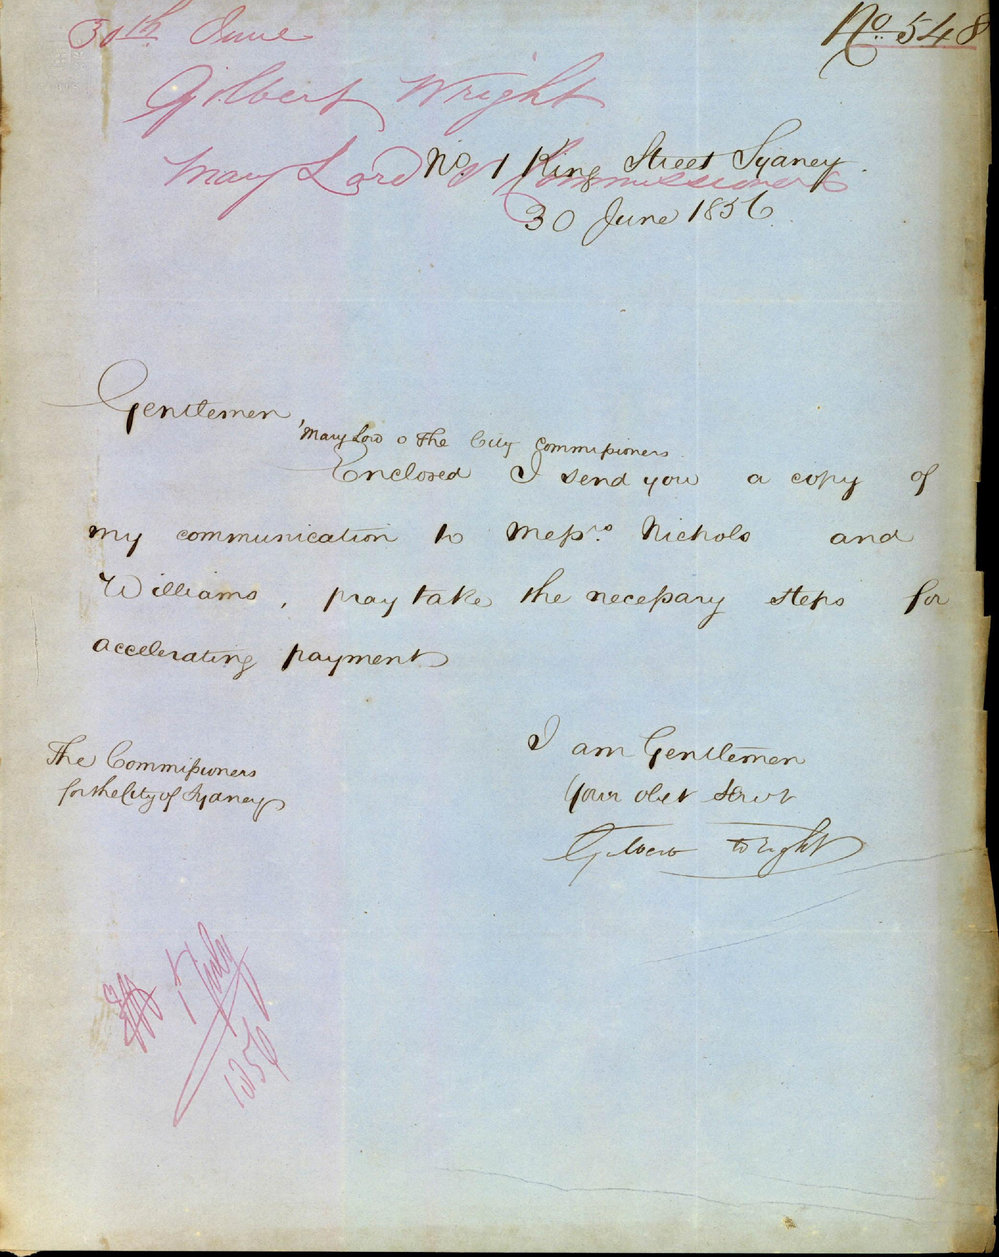 30th June
No. 548
Gilbert Wright
Mary Lord v Commissioners
No. 1 King Street Sydney
30 June 1856
Gentlemen,
Mary Lord v The City Commissioners
Enclosed I send you a copy of
my communication to Messrs. Nichols and
Williams, pray take the necessary steps for
accelerating payment
I am Gentlemen
Your obet Servt
Gilbert Wright
The Commissioners
for the City of Sydney
1 July
1856